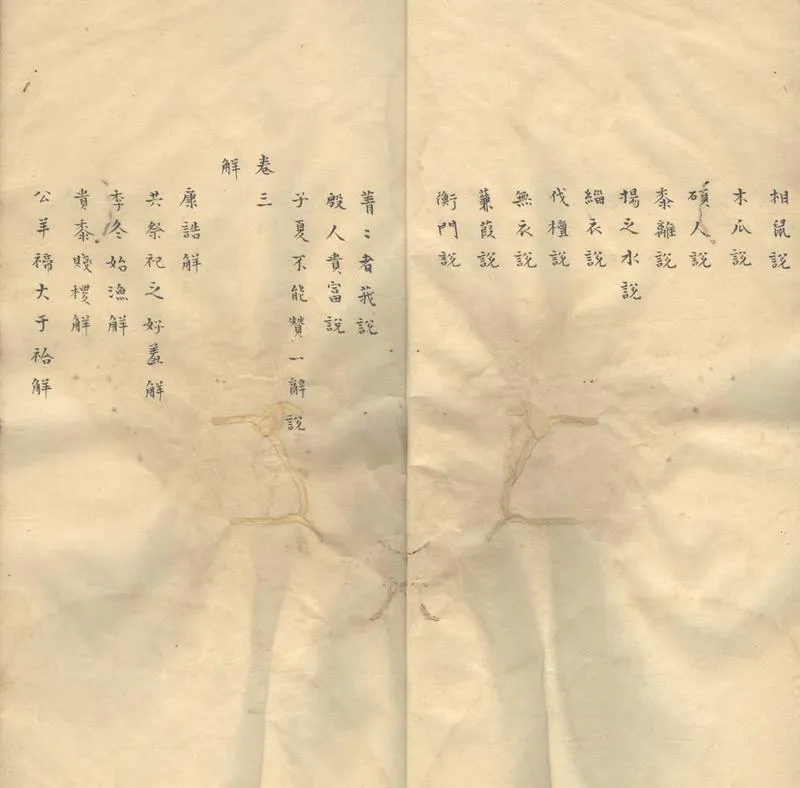 相鼠說
木瓜說
碩人說
黍離說
揚之水說
緇衣說
伐檀說
無衣說
蒹葭說
衡門說
菁〻者莪說
殷人貴富說
子夏不能贊一辭說
卷三
解
康誥解
共祭祀之好羞解
季冬始漁解
貴黍賤稷解
公羊禘大于祫解